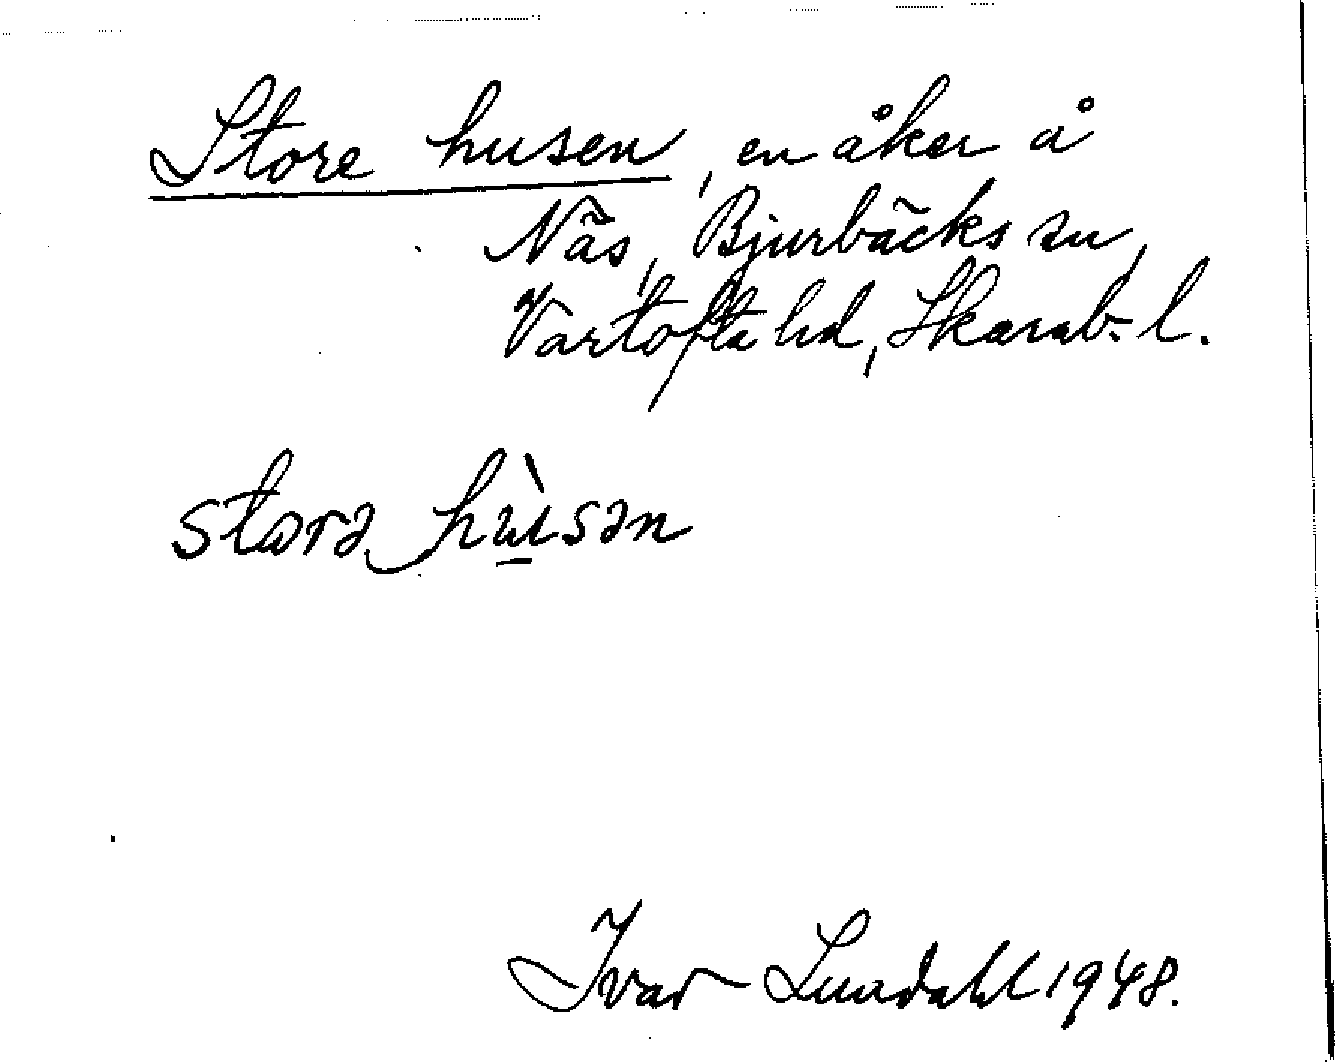 Store husen, en åker å
Näs, Bjurbäcks sn,
Vartofta hd, Skarab. l.
storə hùsən
Ivar Lundahl 1948.